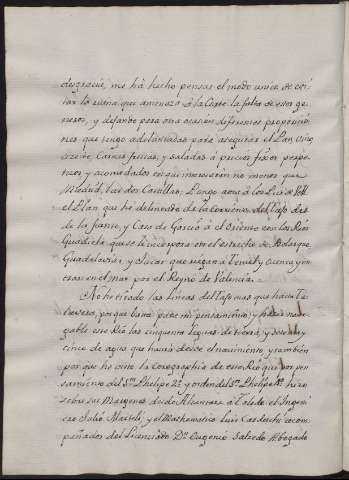 desgracia, me há hecho pensar el modo unico de evi-
tar la ruina que amenaza à la Corte la falta de estos ge-
neros, y dexando para otra ocasion diferentes proposicio-
nes que tengo adelantadas para asegurar el Pan, Vino,
Azeite, Carnes frescas, y saladas à precios fixos perpe-
tuos, y acomodados en que interesarán no menos que
Madrid, las dos Castillas. Pongo aora à los Pies de V.M.
el Plan que hé delineado de la Corriente del Tajo des-
de la fuente, y Casa de Garcia à el Oriente con los Rios
Guadiela que se le incorpora en el estrecho de Bolarque
Guadalaviar, y Jucar que riegan à Teruel, y Cuenca, y en-
tran en el mar por el Reyno de Valencia.
No hé tirado las lineas del Tajo mas que hasta Ta-
lavera, porque basta para mi pensamiento, y hacer nave-
gable este Rio las cinquenta leguas de tierra, y
cinco de agua que havrá desde el nacimiento, y tambien
porque he visto la Corographia de este Rio que por pen-
samiento del S.or Phelipe 2.º y orden del S.or Phelipe 4.º hizo
sobre sus Margenes desde Alcantara à Toledo el Ingenie-
ro Julio Marteli, y el Mathematico Luis Carduchi acom-
pañados del Licenciado D.n Eugenio Salzedo Abogado